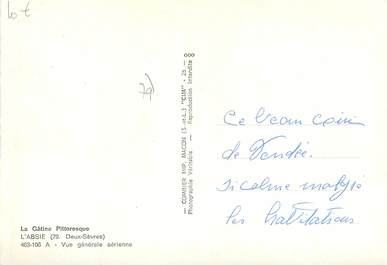 lot
79)
La Gâtine Pittoresque
L'ABSIE (79. Deux-Sèvres)
403-106 A - Vue générale aérienne
000
— COMBIER IMP. MACON (S.-et-L.) "CIM" - 25 —
Phototypie Véritable — Reproduction Interdite
Ce beau coin
de Vendée.
si calme malgré
les habitations